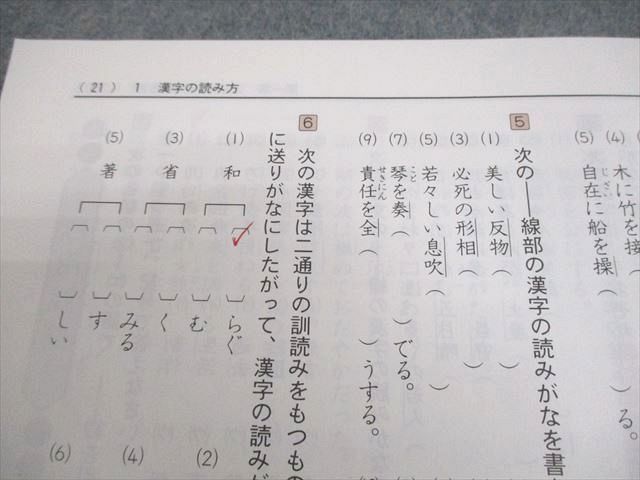 (21) 1 漢字の読み方
(4) 木に竹を接
(5) 自在に船を操
じざい
()る。
5 次の──線部の漢字の読みがなを書
(1) 美しい反物()
(3) 必死の形相()
(5) 若々しい息吹()
(7) 琴を奏()でる。
こと
(9) 責任を全()うする。
せきにん
6 次の漢字は二通りの訓読みをもつもの
に送りがなにしたがって、漢字の読みが
(1) 和
〔 〕らぐ
〔 〕む
(3) 省
〔 〕く
〔 〕みる
(5) 著
〔 〕す
〔 〕しい
(2)
(4)
(6)